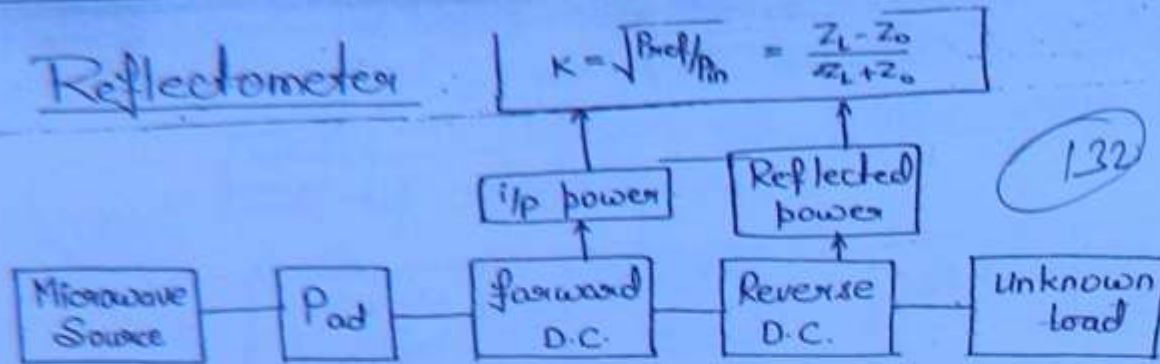 Reflectometer
K = √Pref/Pin = ZL - Z0 / ZL + Z0
132
i/p power
Reflected
power
Microwave
Source
Pad
forward
D.C.
Reverse
D.C.
Unknown
load